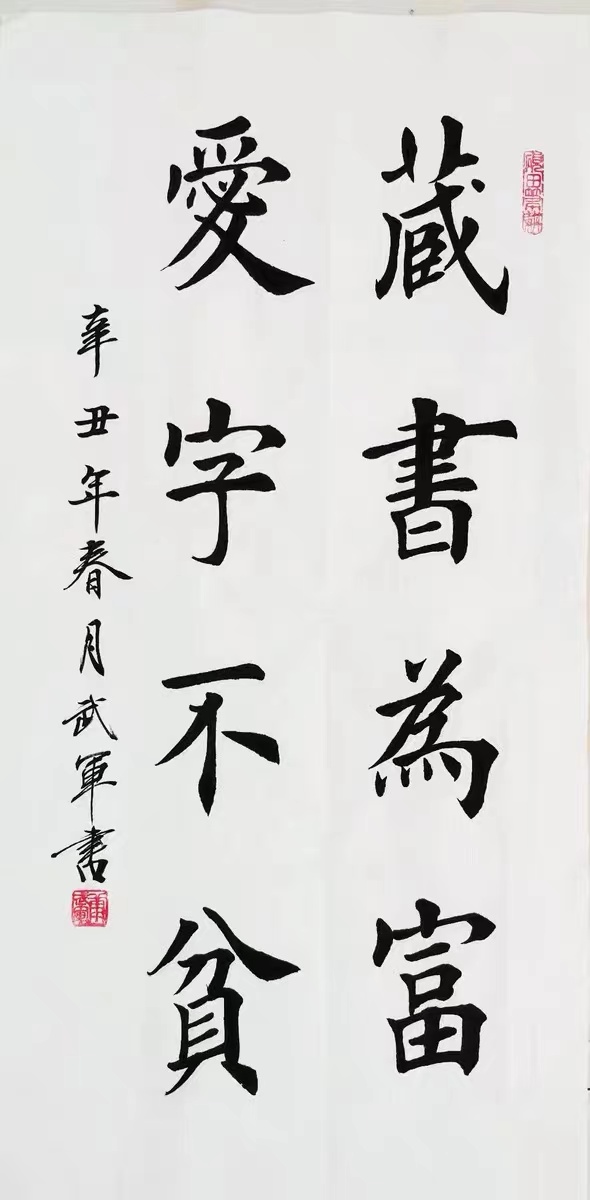 藏書為富
愛字不貧
辛丑年春月武軍書